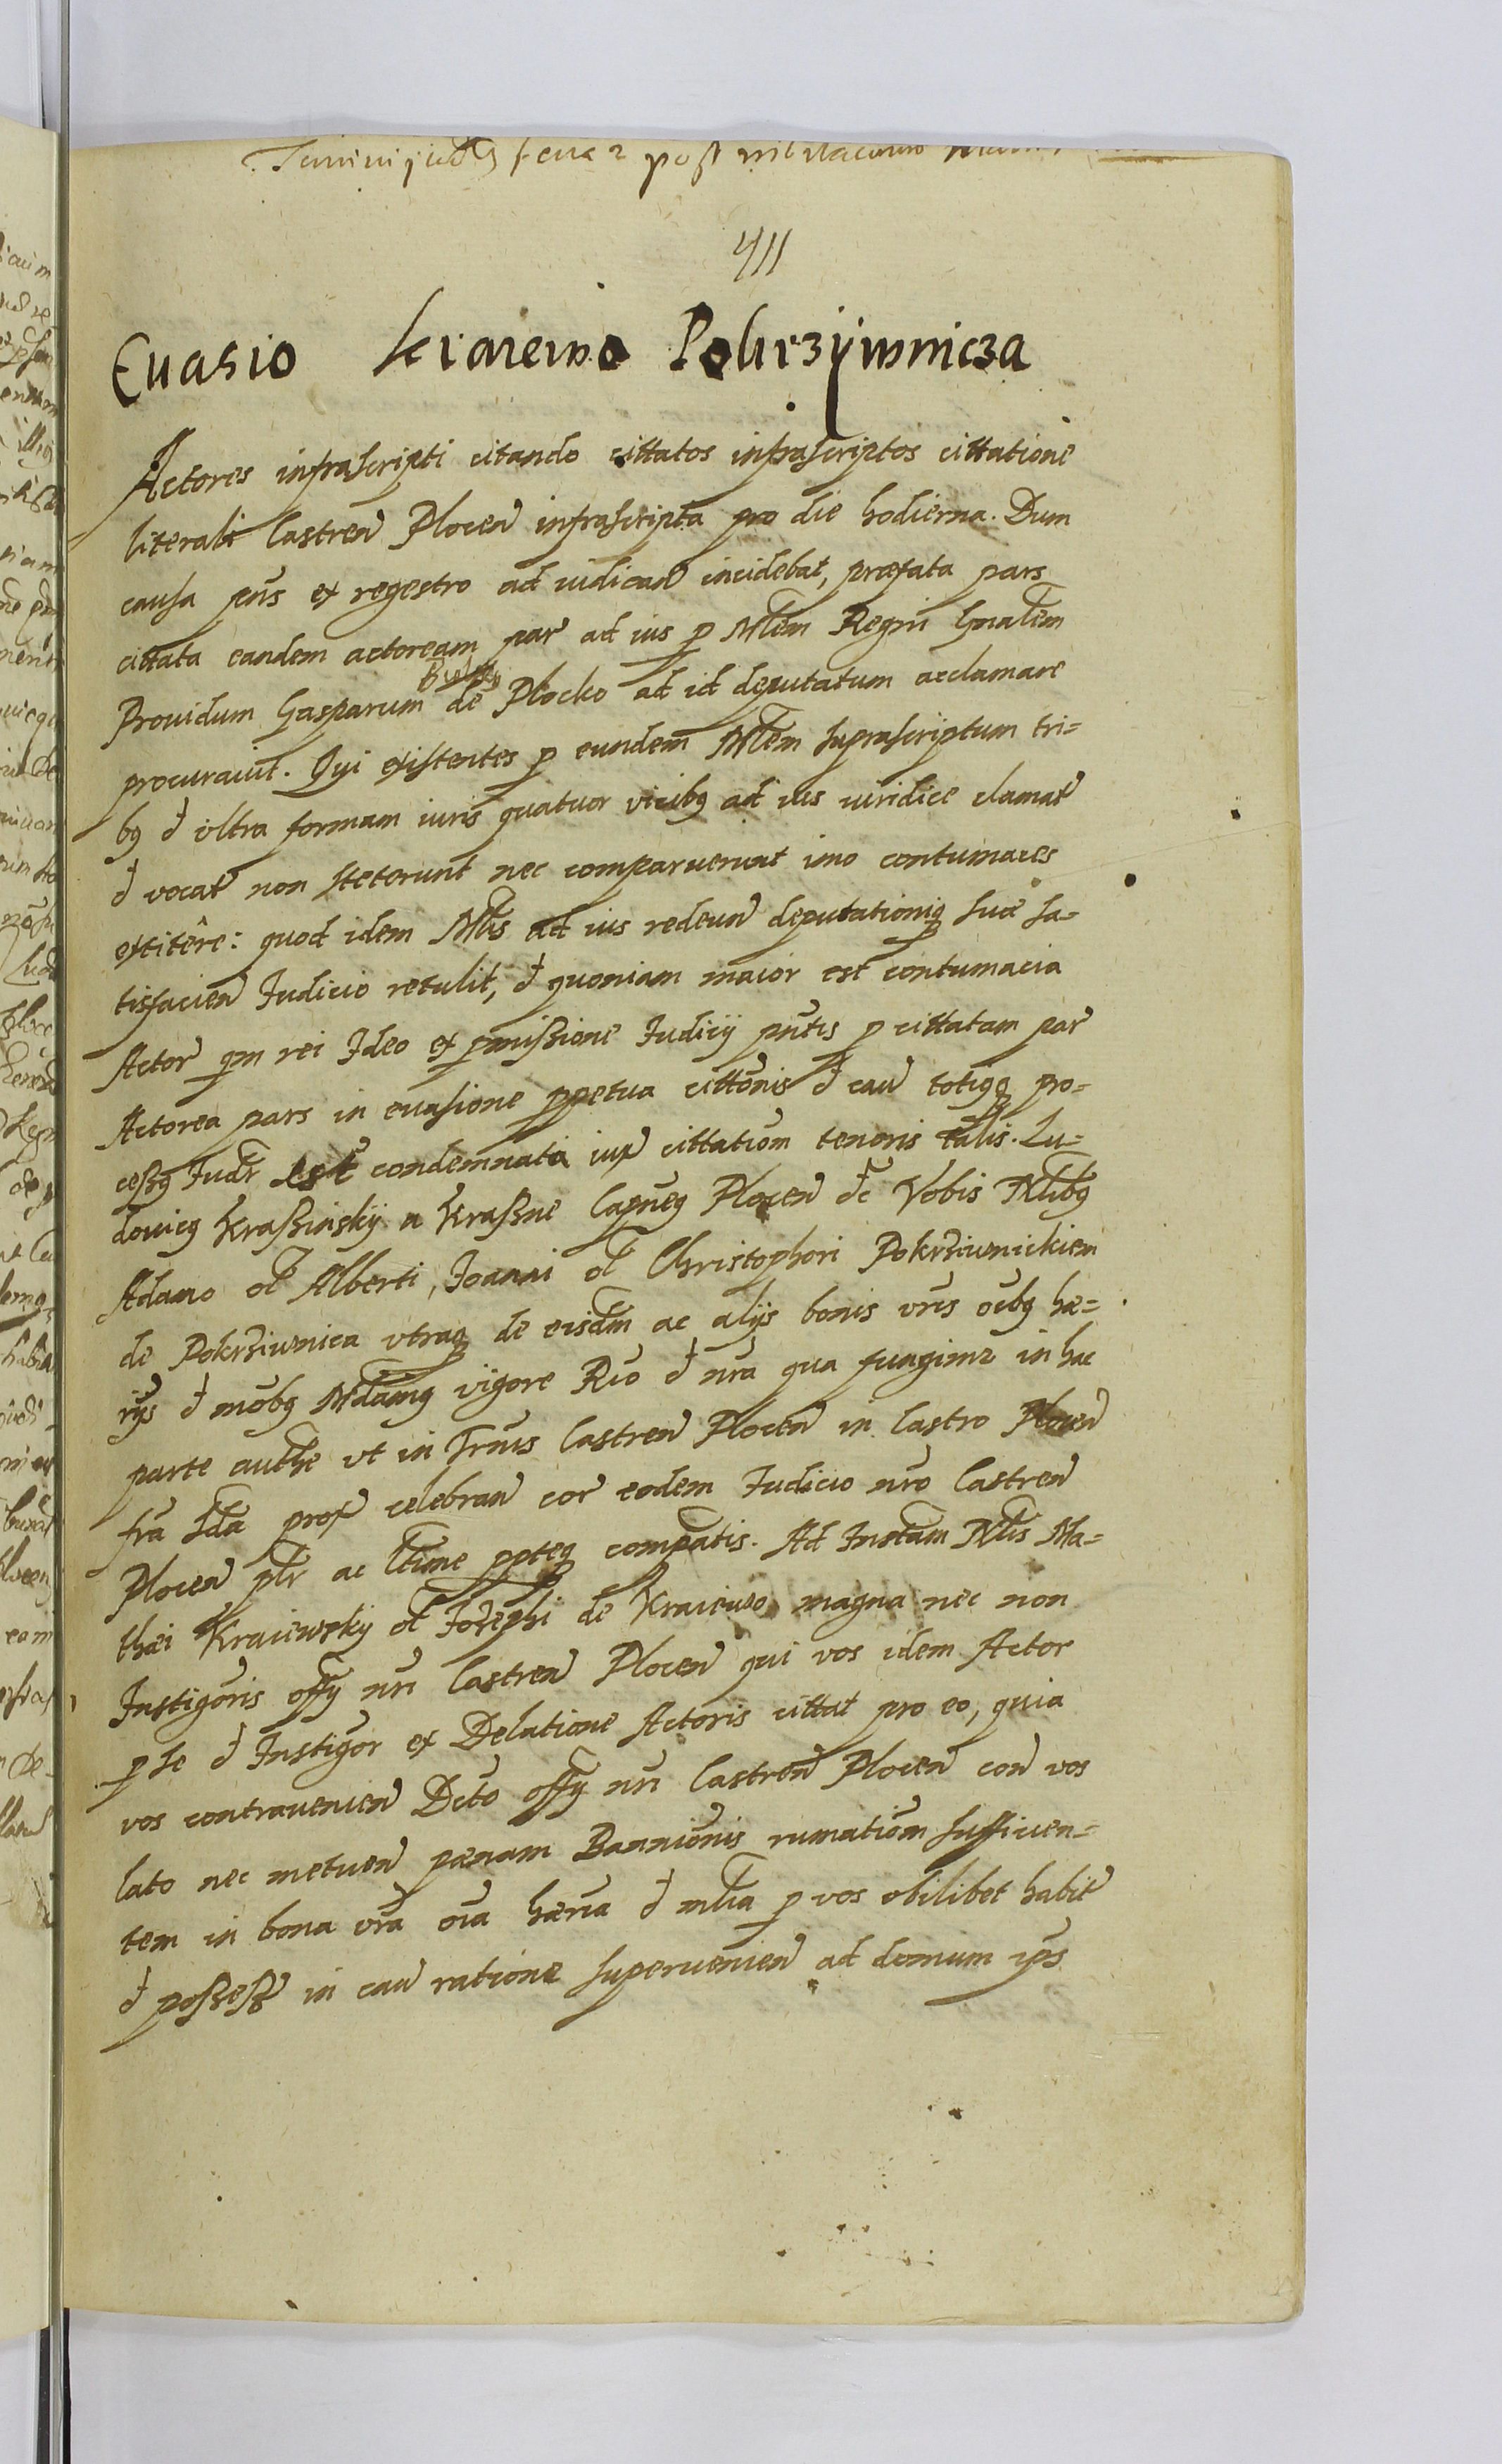 post
411
Evasio Kraiewo Pokrzywnicza
Actores infrascripti citando cittatos infrascriptos cittatione
literali Castren Plocen infrascripta pro die hodierna. Dum
causa pns ex regestro ad iudican incidebat, præfata pars
cittata eandem actoream par ad ius p Mtem Regni Gnalem
Providum Gasparum de Plocko ad id deputatum acclamare
procuravit. Qui existentes p eundem Mtem suprascriptum tri-
bq et ultra formam iuris quatuor vicibq ad ius iuridice clamat
et vocat non steterunt nec comparuerunt imo contumaces
extitêre: quod idem Mtis ad ius redeun deputationiq suæ sa-
tisfacien Iudicio retulit, et quoniam maior est contumacia
Actor qm rei Ideo ex pmissione Iudicij pntis p cittatam par
Actorea pars in evasione ppetua cittonis et cau totiqq pro-
cessq Iudr est condemnata iux cittatiom tenoris talis. Lu-
dovicq Krassinskij a Krassne Capneq Plocen etc Vobis Nlibq
Adamo ol Alberti, Joanni ol Christophori Pokrziwnickiem
de Pokrziwnica utraq de eisdm ac alijs bonis vris oibq hæ-
rijs et mobq Mdamq vigore Rio et nra qua fungimr in hac
parte authe vt in Trnis Castren Plocen in Castro Plocen
fra 2da prox celebran cor eodem Iudicio nro Castren
Plocen plr ac ltime ppteq compatis. Ad Instam Nlis Ma-
thæi Kraiewskij ol Josephi de Kraiewo magna nec non
Instigoris offij nri Castren Plocen qui vos idem Actor
p se et Instigor ex Delatione Actoris cittat pro eo, quia
vos contravenien Dcto offij nri Castren Plocen con vos
lato nec metuen pænam Bannionis rumatiom sufficien-
tem in bona vra oia hæria et mlia p vos vbilibet habit
et possess in cau ratione supervenien ad domum ips